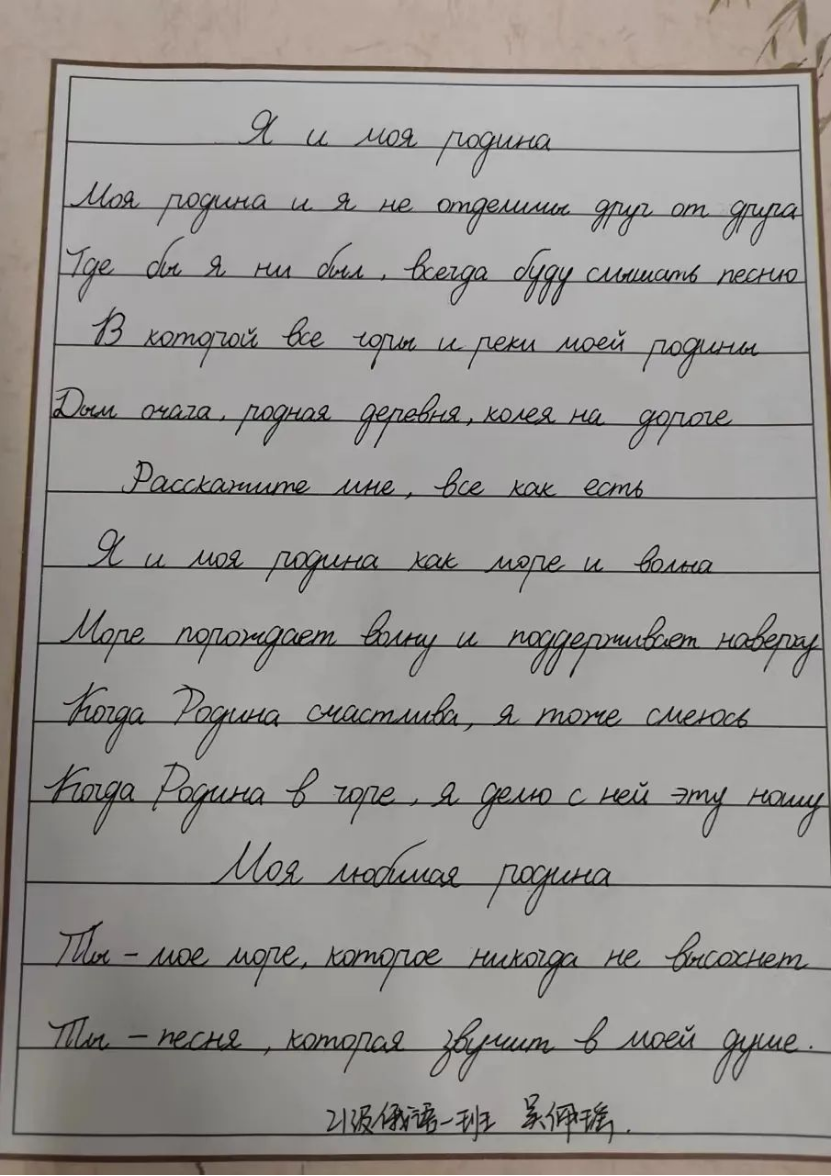 Я и моя родина
Моя родина и я не отделимы друг от друга
Где бы я ни был, всегда буду слышать песню
В которой все горы и реки моей родины
Дым очага, родная деревня, колея на дороге
Расскажите мне, все как есть
Я и моя родина как море и волна
Море порождает волну и поддерживает наверху
Когда Родина счастлива, я тоже смеюсь
Когда Родина в горе, я делю с ней эту ношу
Моя любимая родина
Ты – мое море, которое никогда не высохнет
Ты – песня, которая звучит в моей душе.
21级俄语一班 吴佩瑶.